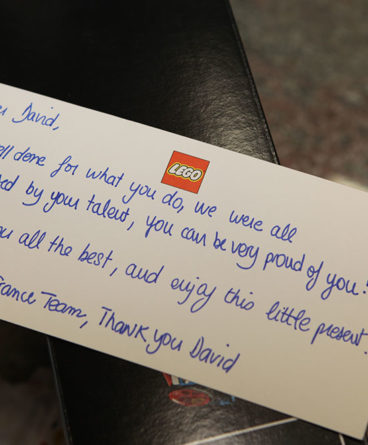 David,
LEGO
done for what you do, we were all
by your talent, you can be very proud of you!
all the best, and enjoy this little present.
France Team, Thank you David